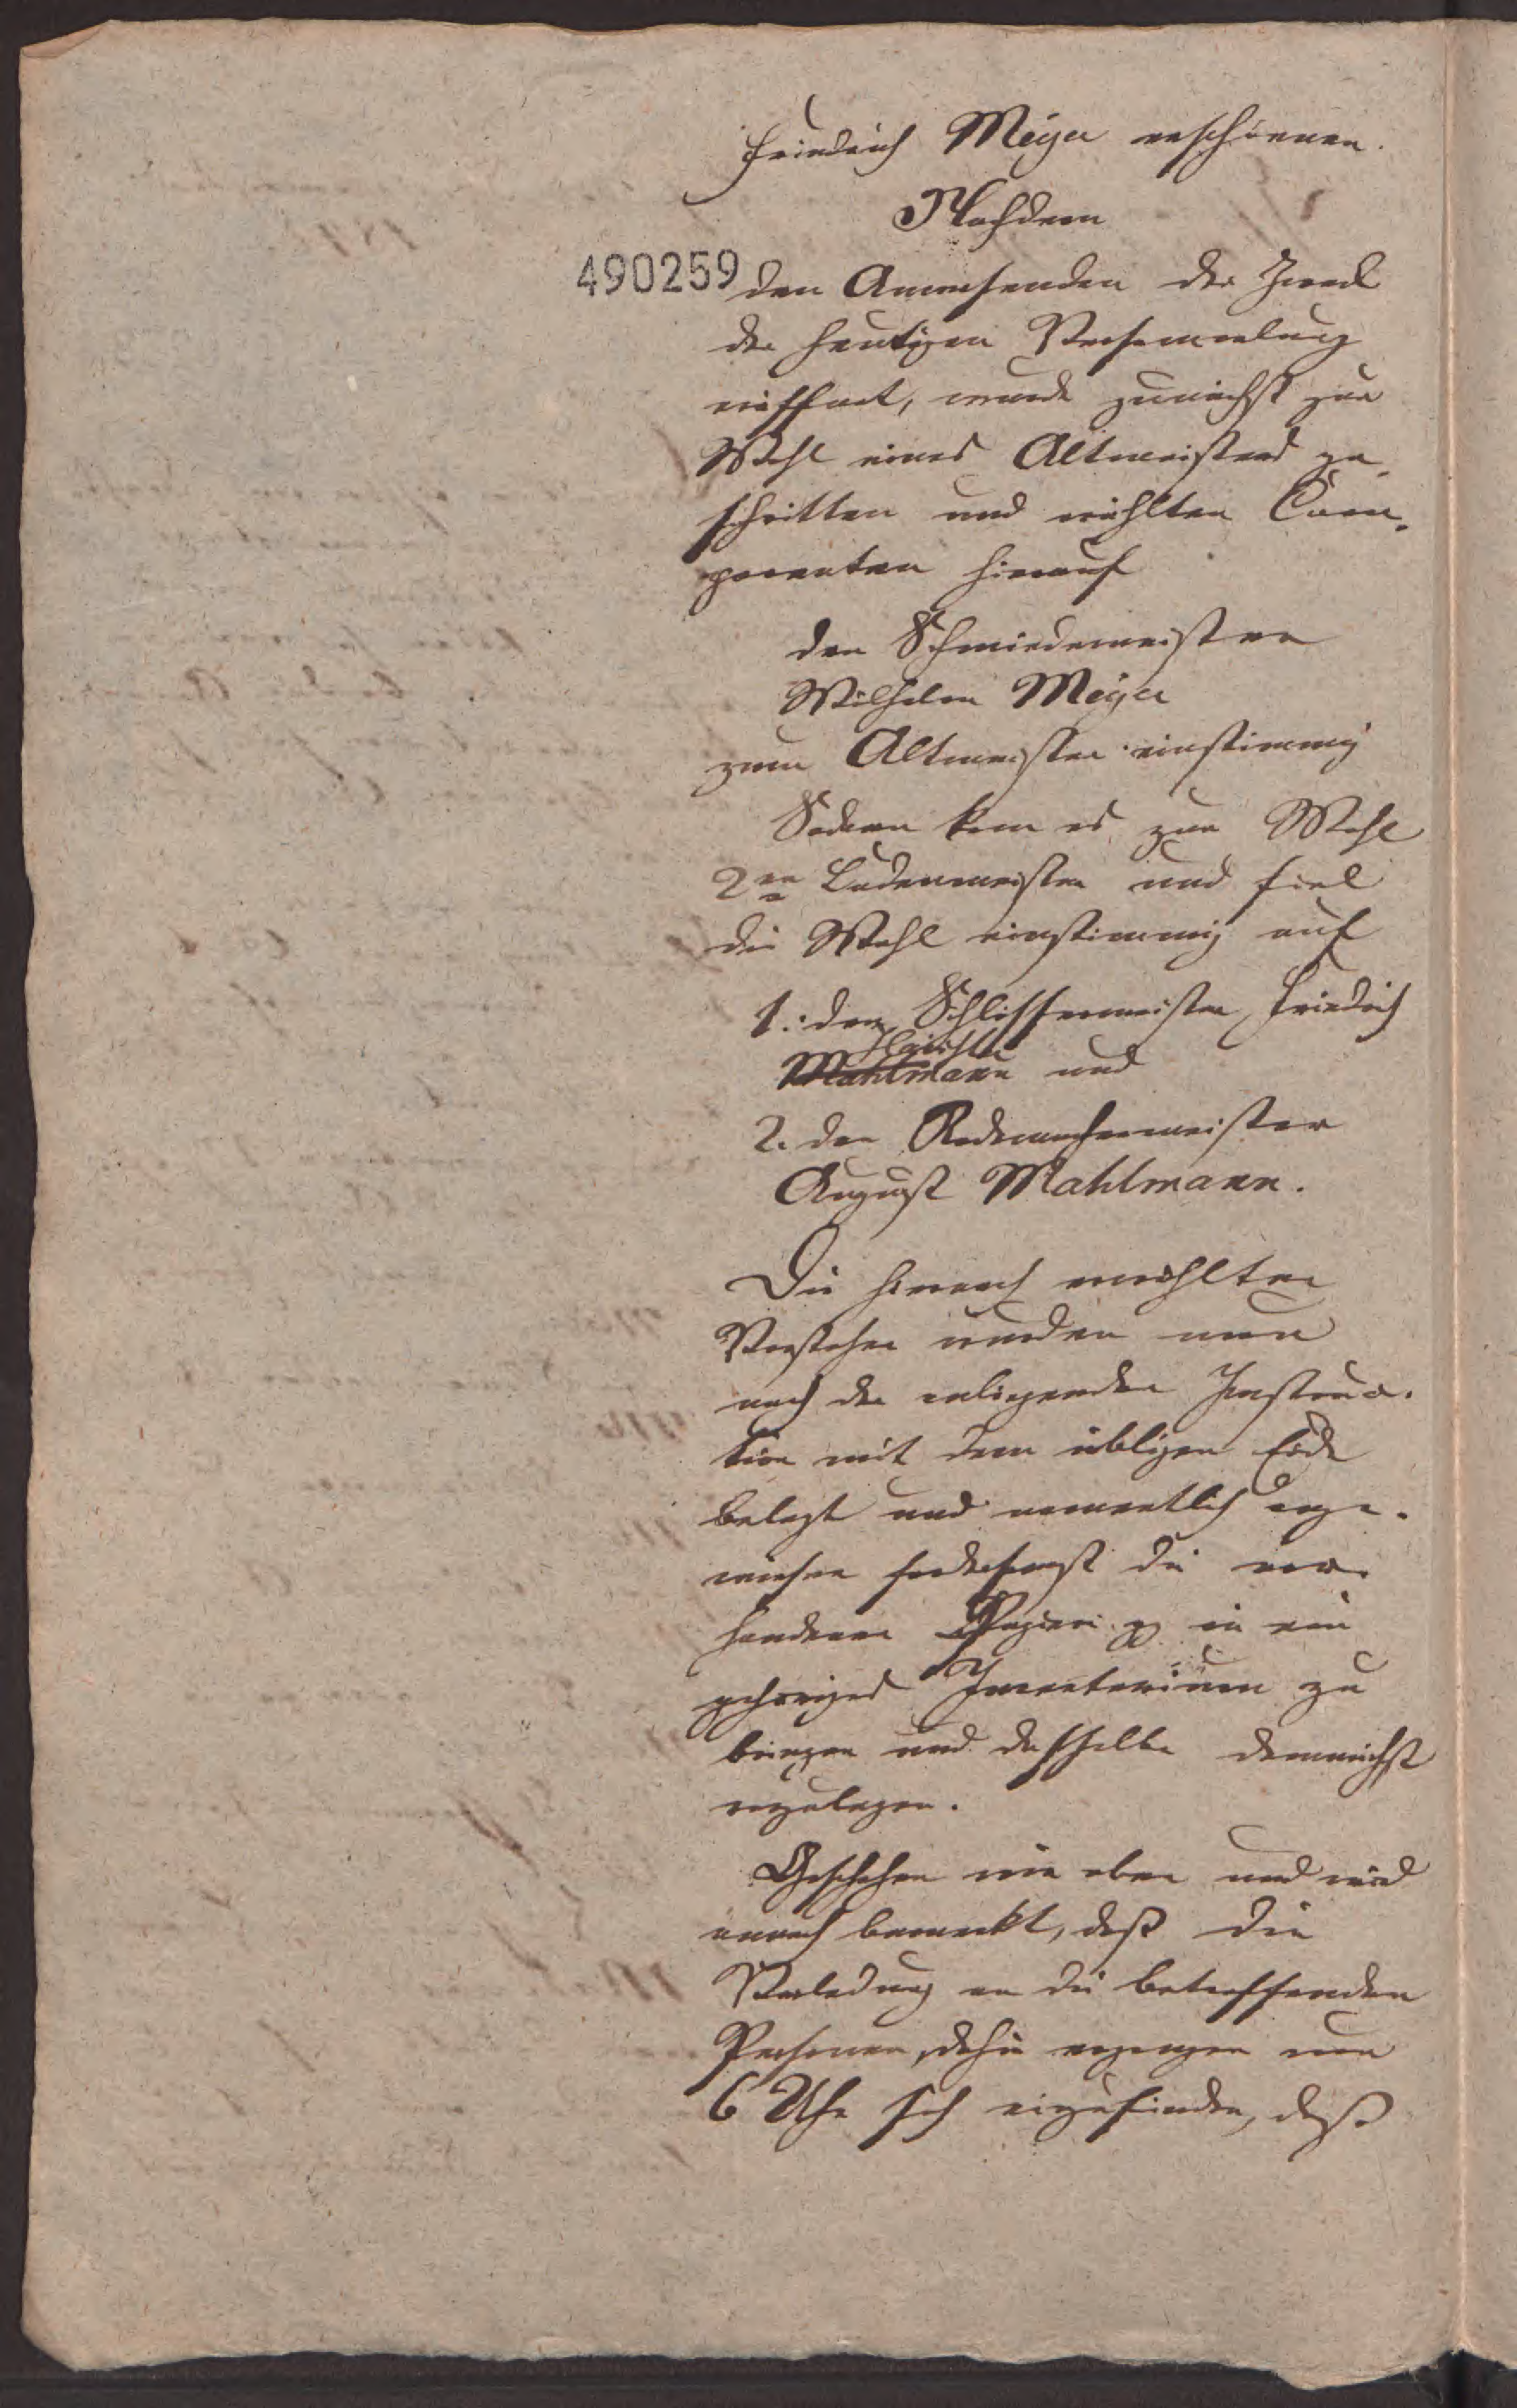 Friedrich Meyer erschienen.
Nachdem
490259
den Anwesenden der Zweck
der heutigen Versammlung
eröffnet, wurde zunächst zur
Wahl eines Altmeisters ge-
schritten und wählten Com-
parenten hierauf
den Schmiedemeister
Wilhelm Meyer
zum Altmeister einstimmig
Sodann kam es zur Wahl
2er Ladenmeister und fiel
die Wahl einstimmig auf
1. den Schlossermeister Friedrich
Mahlmann und
2. den Rademachermeister
August Mahlmann.
Die hiernach erwählten
Vorsteher wurden nun
nach der anliegenden Instruc-
tion mit dem üblichen Eide
belegt und namentlich ange-
wiesen fordersamst die vor-
handenen Papiere pp in ein
gehöriges Inventarium zu
bringen und dasselbe demnächst
vorzulegen.
Geschehen wie oben und wird
annoch bemerkt, daß die
Verladung an die betreffenden
Personen dahin ergangen um
6 Uhr sich einzufinden, daß